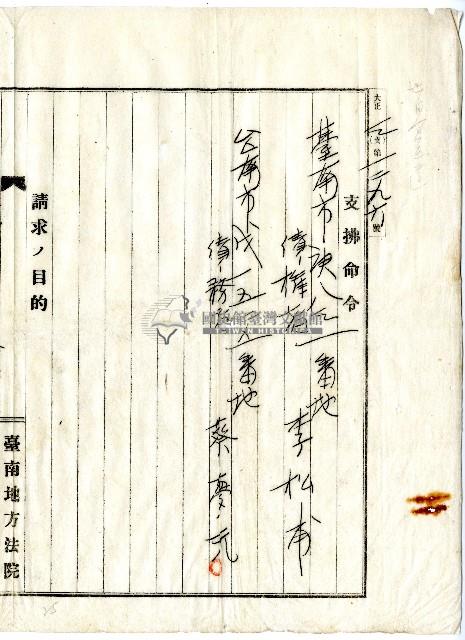 大正 三(支)第一二九六號
支拂命令
臺南市庚八三一番地
債權者 李松甫
台南市戊一五五番地
債務者 蔡夢元
請求ノ目的
臺南地方法院
國立臺灣文學館
TAIWAN HISTORICA